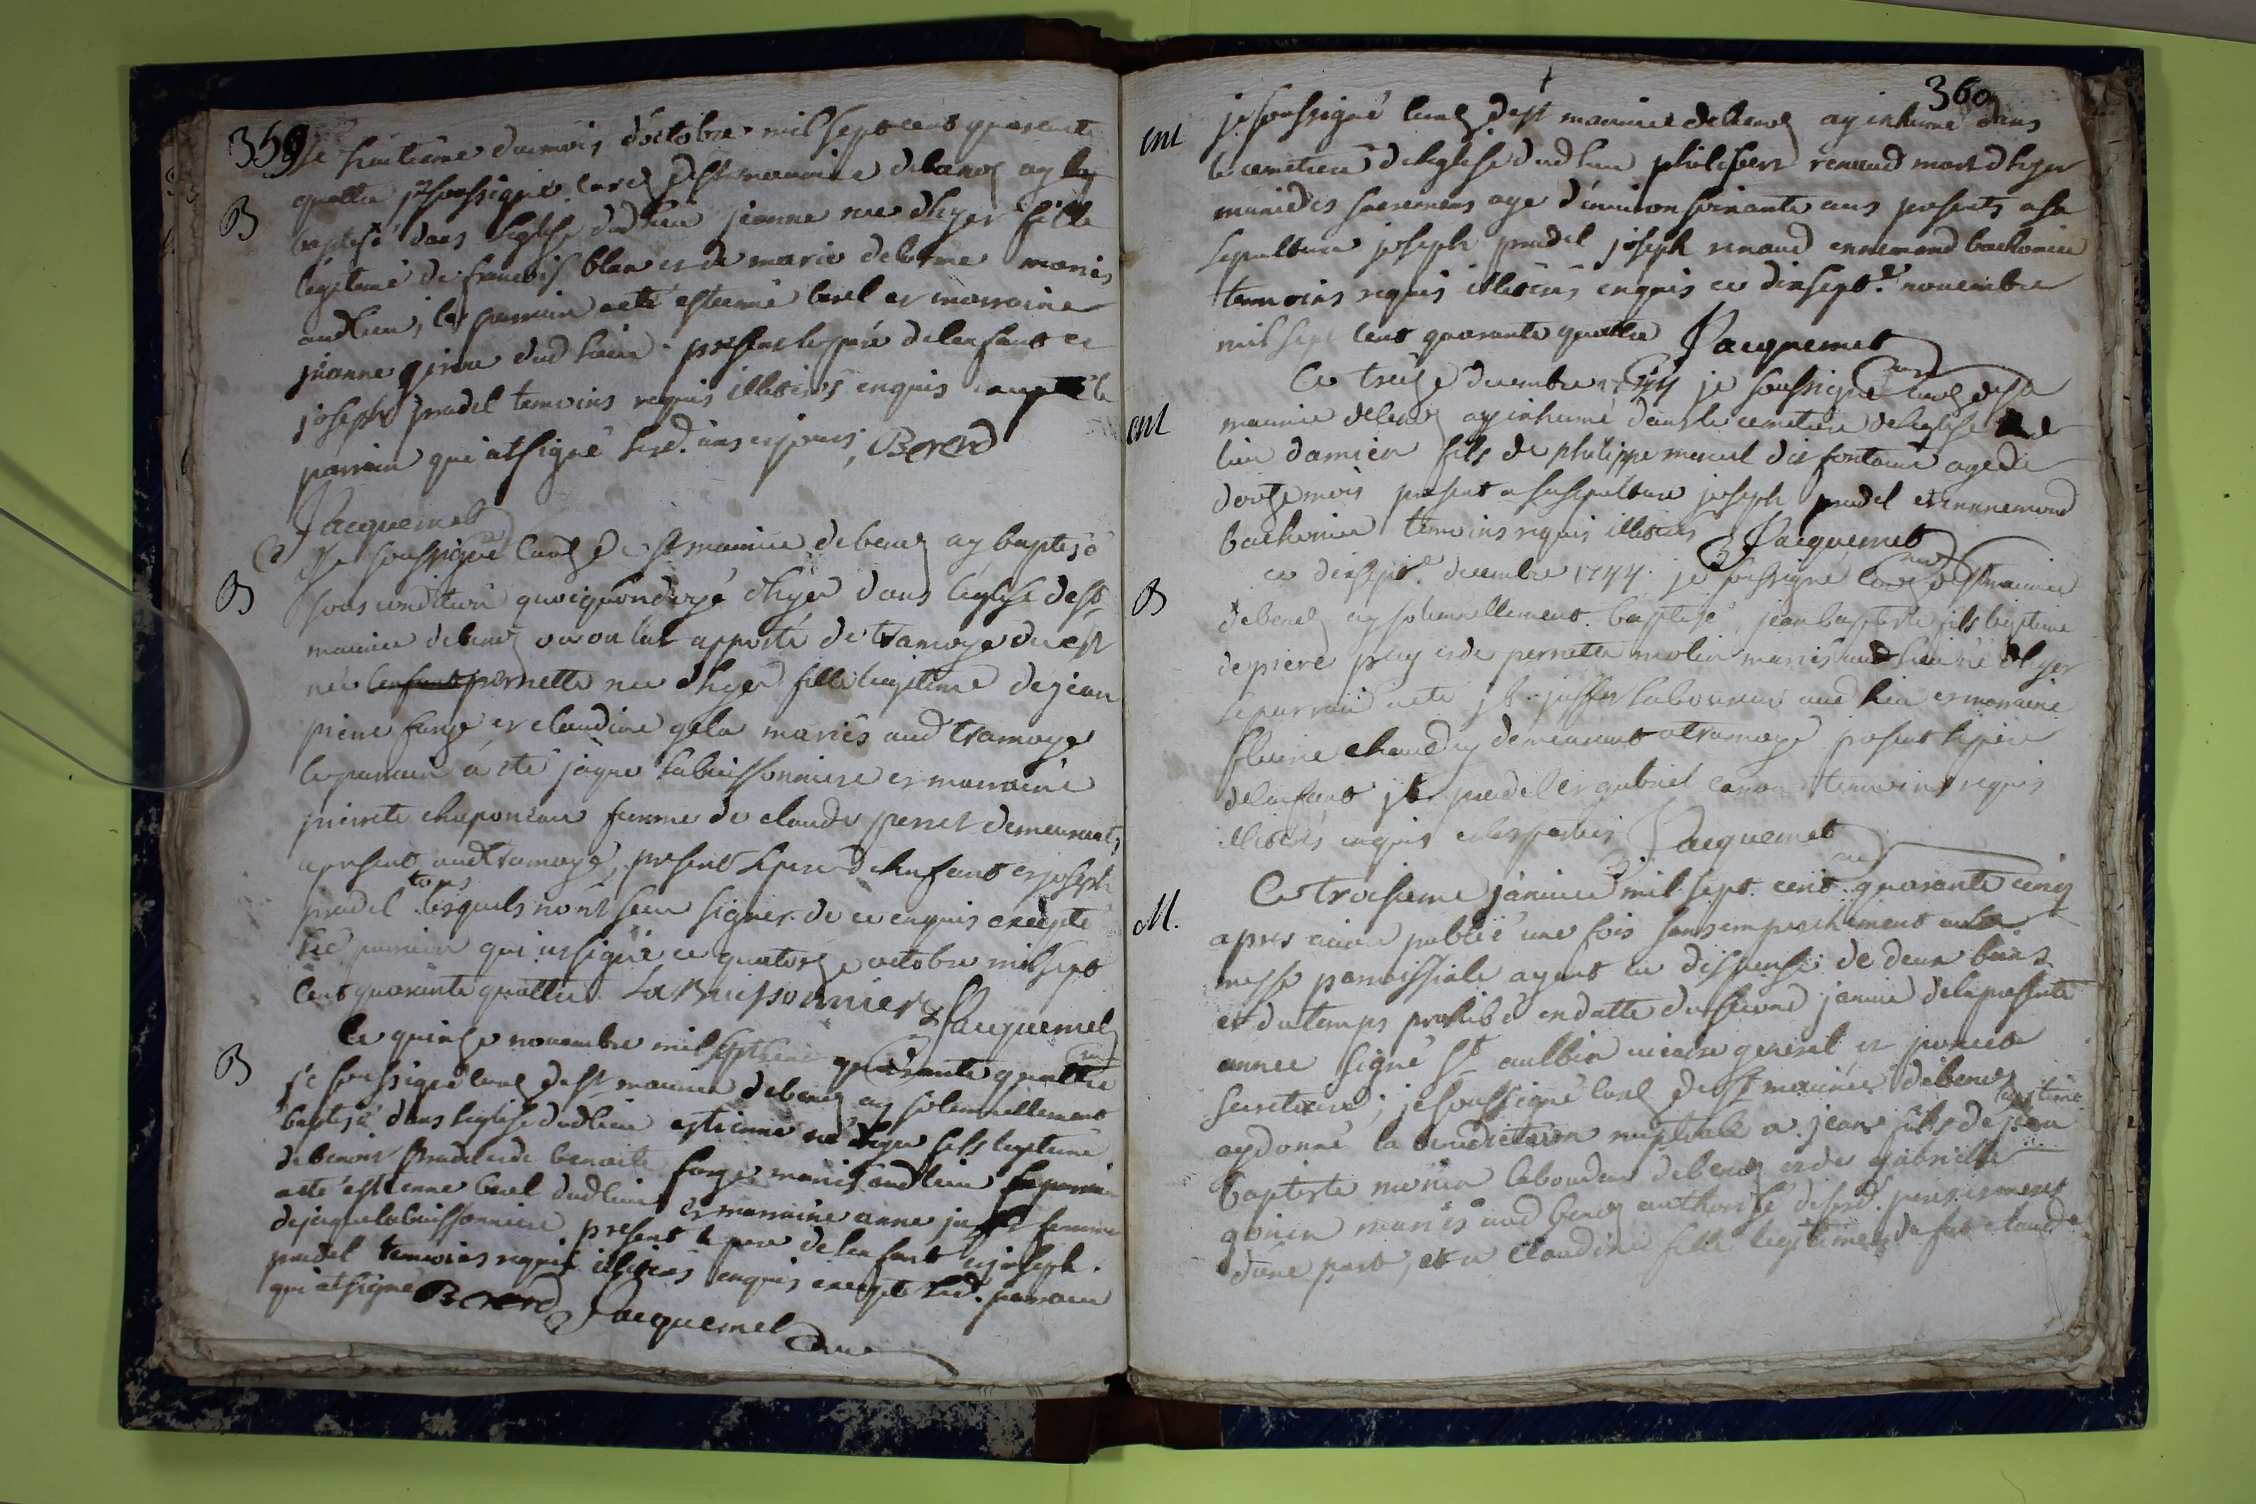 359
Le huitieme du mois d'octobre mil sept cent quarante
quattre je soussigné curé de st maurice debenoz ay
B
baptisé dans l'eglise dud lieu jeanne née d'hyer fille
légitime de francois blan et de marie delorme mariés
aud lieu, le parrain a eté estienne berel et marraine
jeanne dud lieu present le pere de lenfant et
joseph pradel temoins requis illiterés enquis excepté le
parrain qui at signé lesd. ans et jours, Bererd
Jacquemet
curé
Je soussigné curé de st maurice debenoz ay baptisé
B
sous condition quoiquondoyé d'hyer dans l'eglise de st
maurice debenoz ou on lat apporté de tramoye ou est
née pernette née d'hyer fille legitime de jean
pierre farge et claudine gela mariés aud tramoye
le parrain a été jaque labuissonniere et marraine
pierrete chaponeau femme de claude perret demeurants
a present aud tramoye, present le pere de lenfant et joseph
tous
pradel lesquels nont sceu signer de ce enquis excepté
led parrain qui at signé ce quatorze octobre mil sept
cent quarante quattre LaBuissonnier Jacquemet
curé
Ce quinze novembre mil sept cent quarante quattre
B
je soussigné curé de st maurice debenoz ay solennellement
baptisé dans leglise dud lieu estienne né d'hyer fils legitime
de benoit pradel et de benoite farge mariés aud lieu le parrain
a eté estienne berel dud lieu et marraine anne femme
de jaque labuissonniere present le pere de lenfant et joseph
pradel temoins requis illiterés enquis excepté led. parrain
qui at signé Bererd Jacquemet
curé
360
ent
je soussigné curé de st maurice debenoz ay inhumé dans
le cemetiere de leglise dud lieu philibert renaud mort d'hyer
muni des sacremens agé d'environ soixante ans presents a sa
sepulture joseph pradel joseph renaud ennemond bachonier
temoins requis illiterés enquis ce dixsept.e novembre
mil sept cent quarante quattre Jacquemet
curé
Ce treize decembre 1744 je soussigné curé de st
ent
maurice debenoz ay inhumé dans le cemetiere de leglise dud
lieu damien fils de philippe dit fontaine agé de
douze mois present a sa sepulture joseph pradel et ennemond
Bachonier temoins requis illiterés Jacquemet
curé
ce dixsept.e decembre 1744. je soussigné curé de st maurice
B
debenoz ay solennellement baptisé jean baptiste fils legitime
de piere et de pernette molin mariés aud lieu né d'hyer
le parrain a eté laboureur aud lieu et marraine
fleurie demeurant a tramoye present le pere
de lenfant pradel et gabriel temoins requis
illiterés enquis et les parties Jacquemet
curé
M.
Ce troisieme janvier mil sept cent quarante cinq
apres avoir publié une fois sans empeschement a la
messe parroissiale ayant eu dispense de deux bans
et du temps prohibé en datte du second janvier de la presente
année signé st aulbin vicaire general et
secretaire; je soussigné curé de st maurice debenoz
ay donné la benediction nuptiale a jean fils legitime de jean
baptiste laboureur debenoz et de gabrielle
mariés aud benoz authorisé de sesd. pere et mere
d'une part, et a claudine fille legitime de fut claude